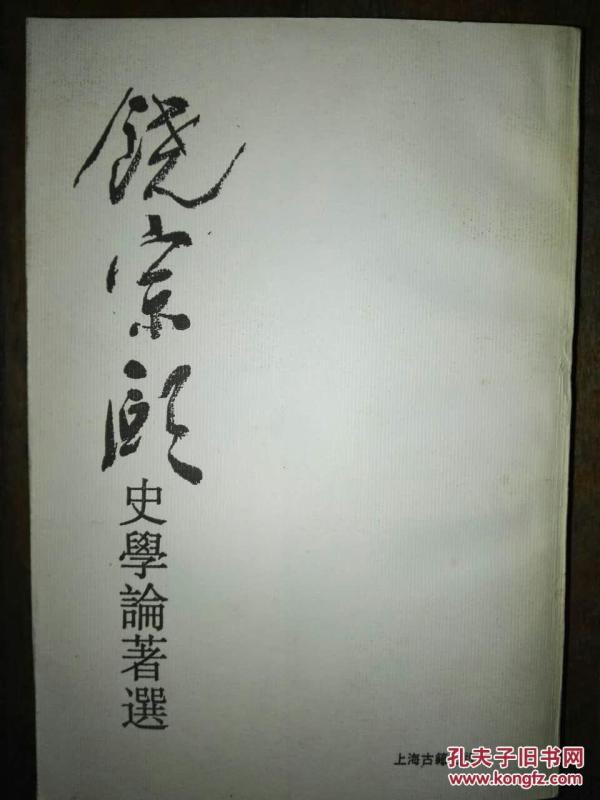 饒宗頤
史學論著選
上海古籍
孔夫子旧书网
www.kongfz.com